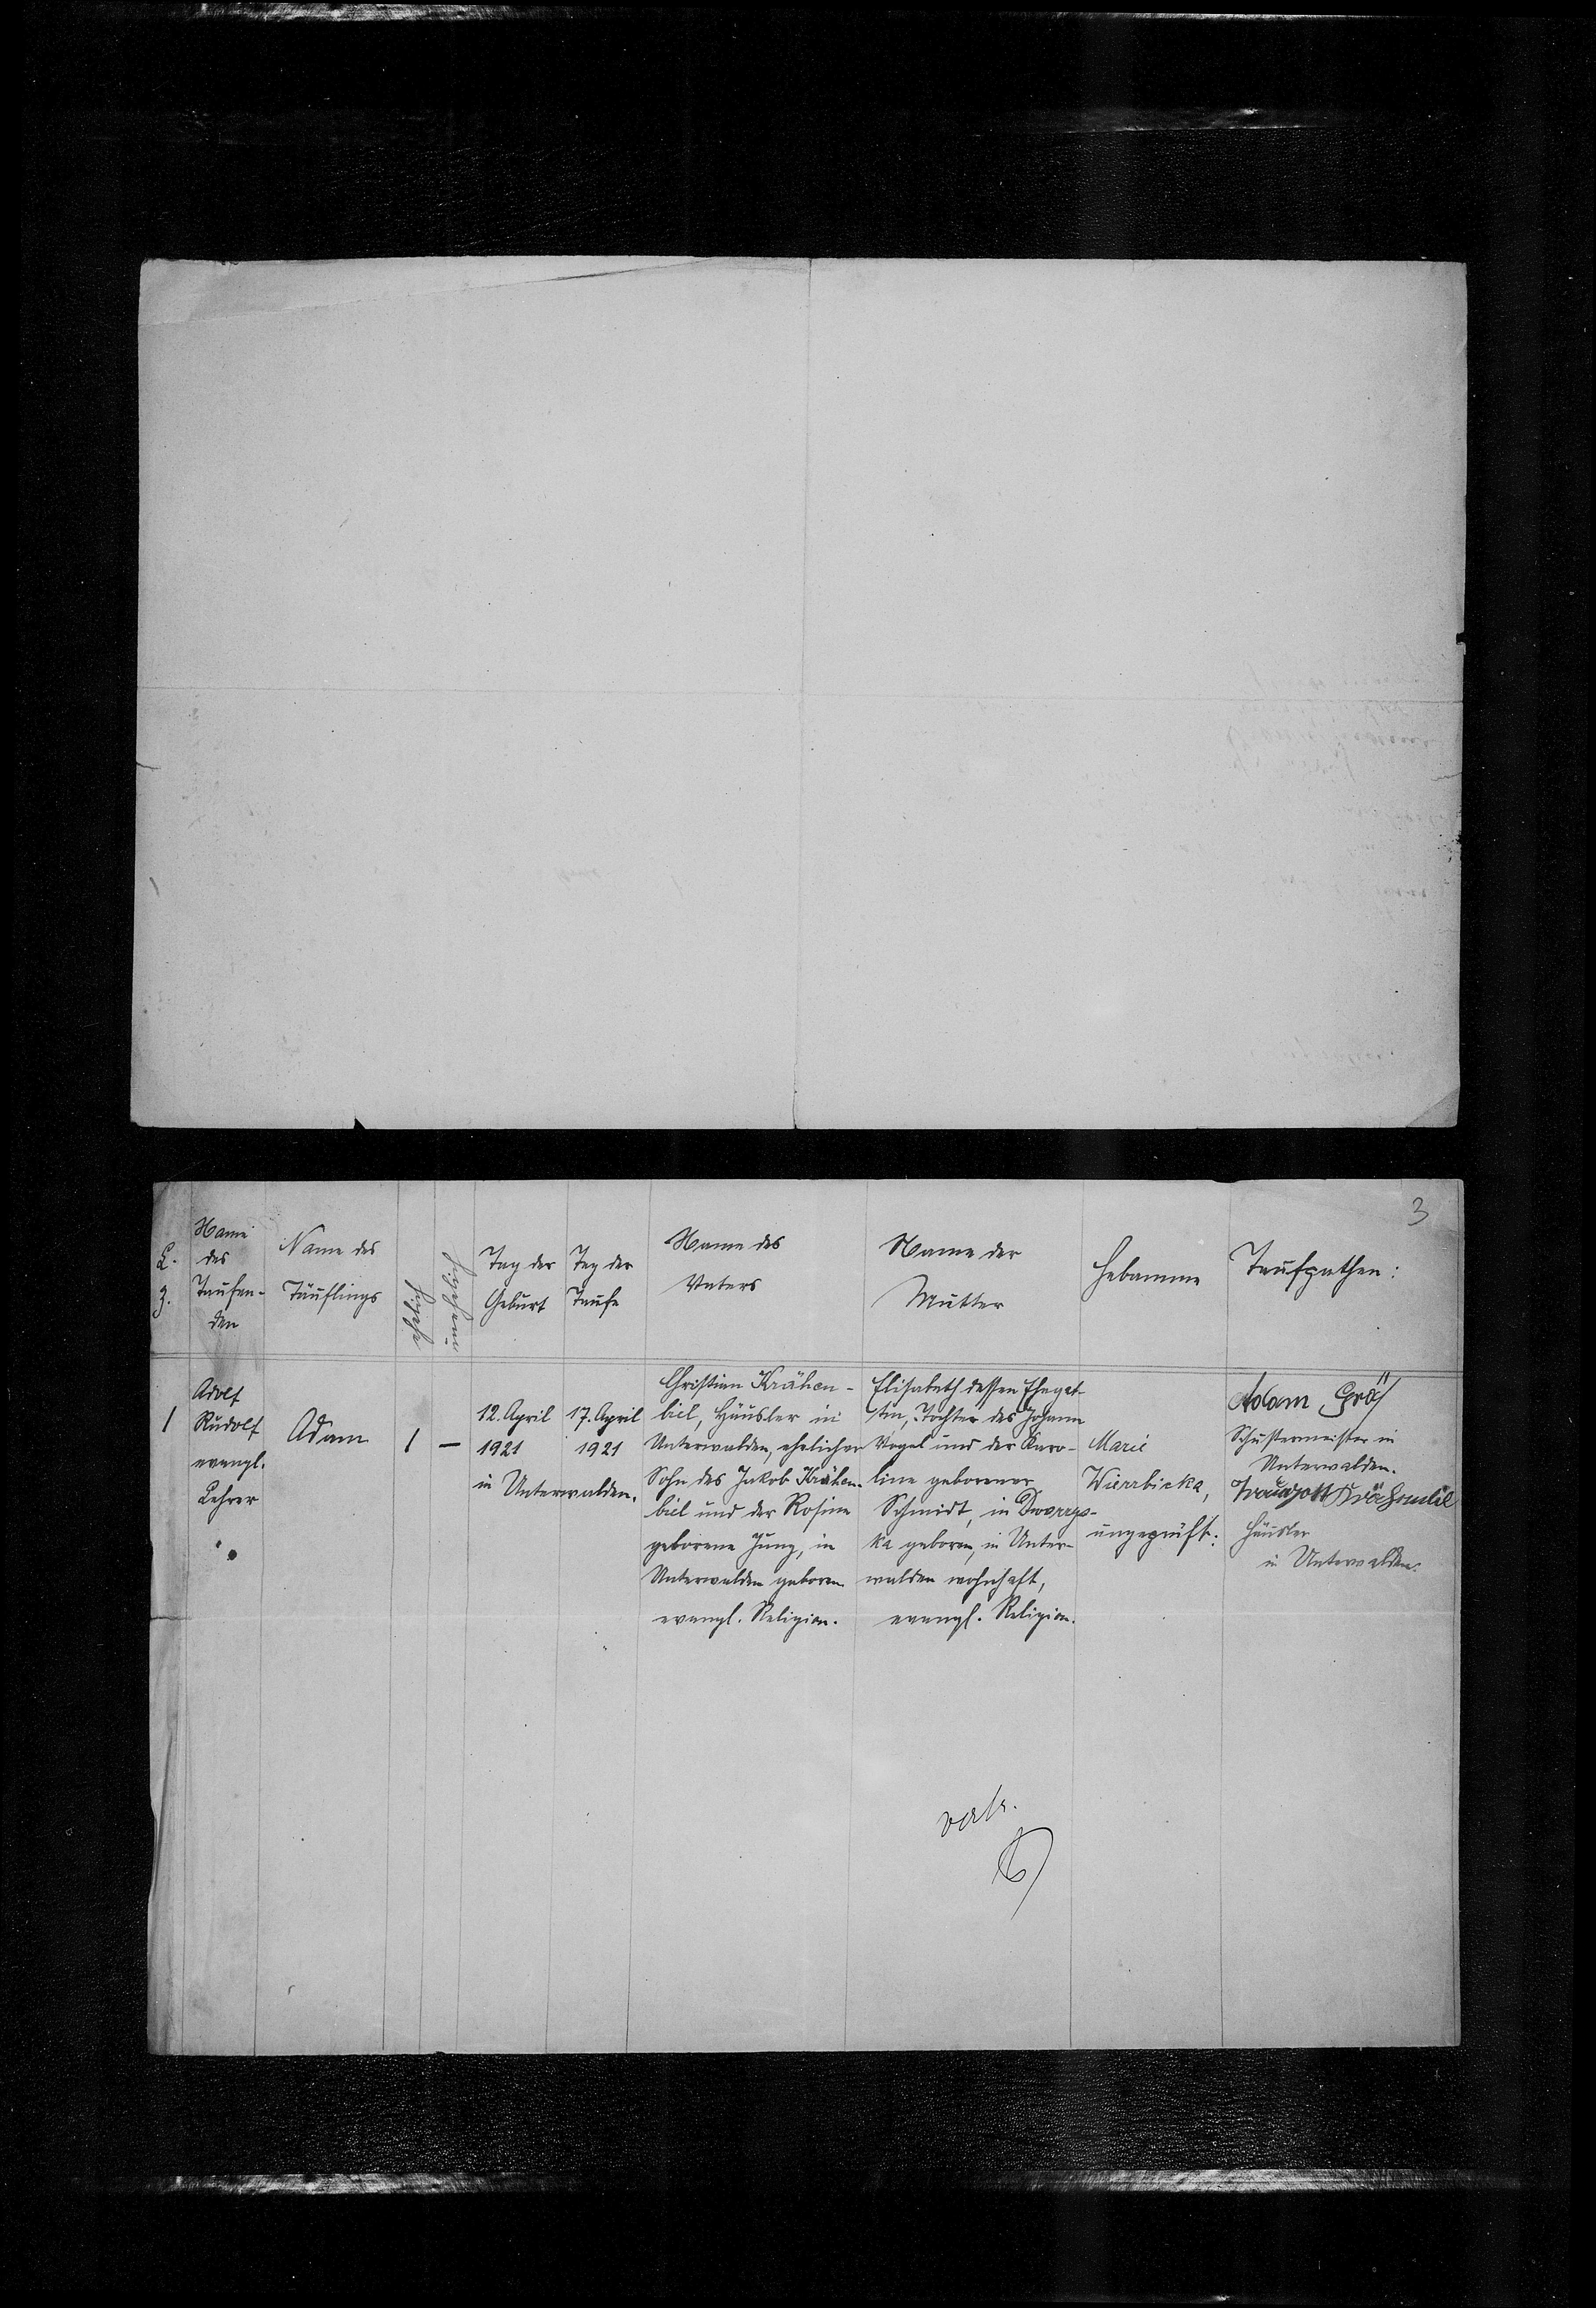 3
L.
Z.
Name
des
Taufen-
den
Name des
Täuflings
ehelich
unehelich
Tag der
Geburt
Tag der
Taufe
Name des
Vaters
Name der
Mutter
Hebamme
Taufpathen:
1
Adolf
Rudolf
evangl.
Lehrer
Adam
1
—
12. April
1921
in Unterwalden.
17. April
1921
Christian Krähen-
biel, Häusler in
Unterwalden, ehelicher
Sohn des Jakob Krähen-
biel und der Rosine
geborene Jung, in
Unterwalden geboren
evangl. Religion.
Elisabeth dessen Ehegat-
tin, Tochter des Johann
Vogel und der Karo-
line geborener
Schmidt, in Dworzys-
ka geboren, in Unter-
walden wohnhaft,
evangl. Religion.
Marie
Wierzbicka,
ungeprüft.
Adam
Schustermeister in
Unterwalden.
Traugott Krähenbiel
Häusler
in Unterwalden.